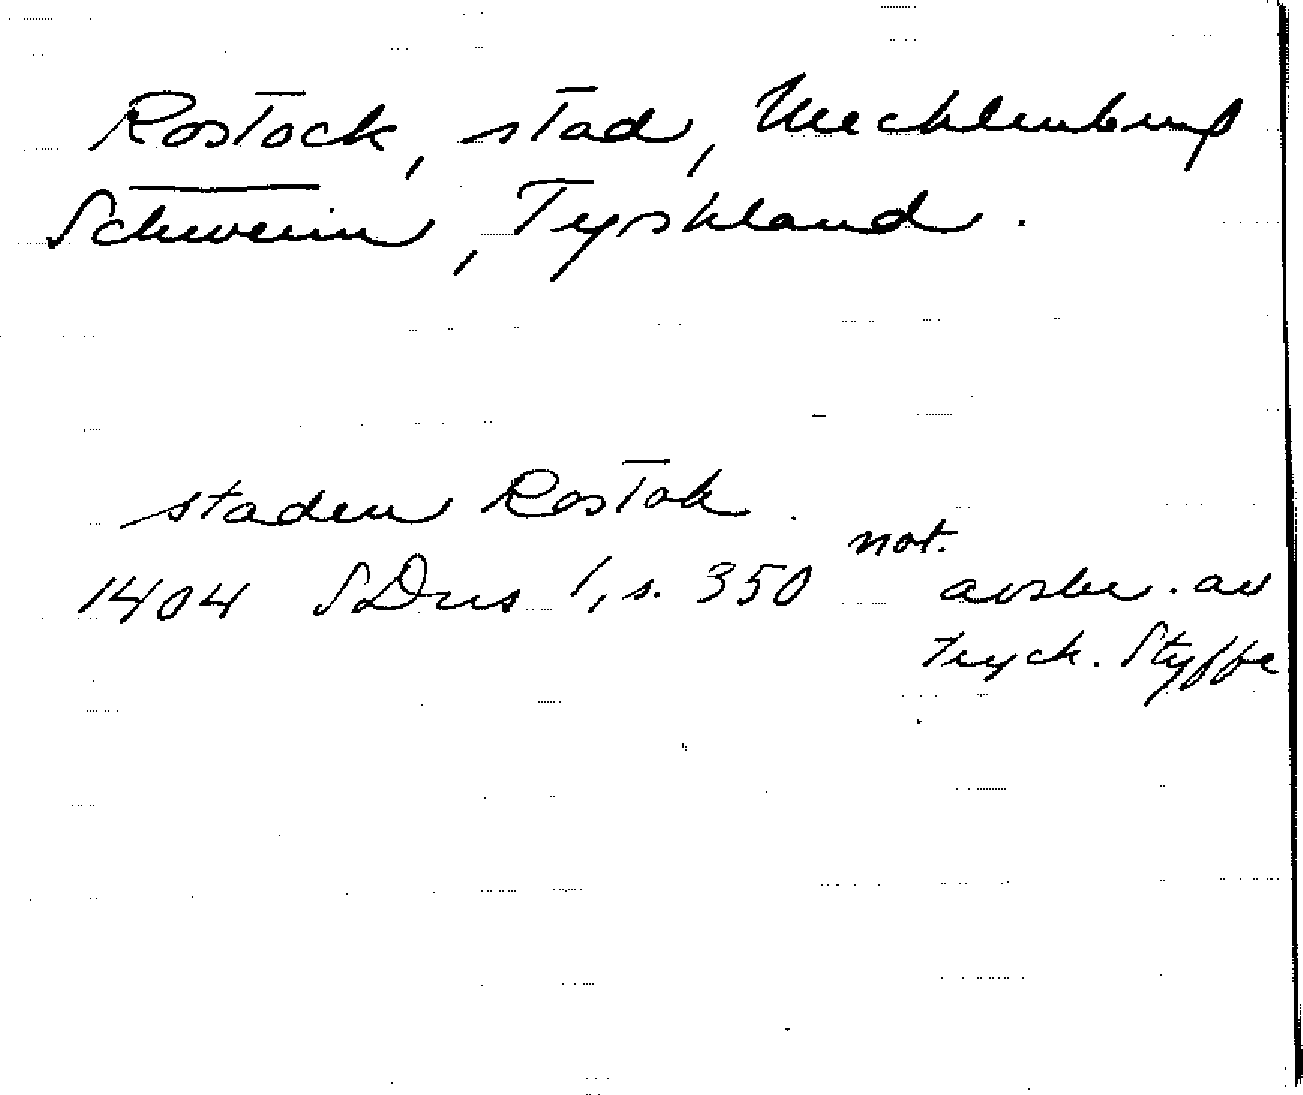 Rostock, stad, Mecklenburg
Schwerin, Tyskland.
staden Rostok.
1404 SDns 1, s. 350 not.
avskr. av
tryck. Styffe